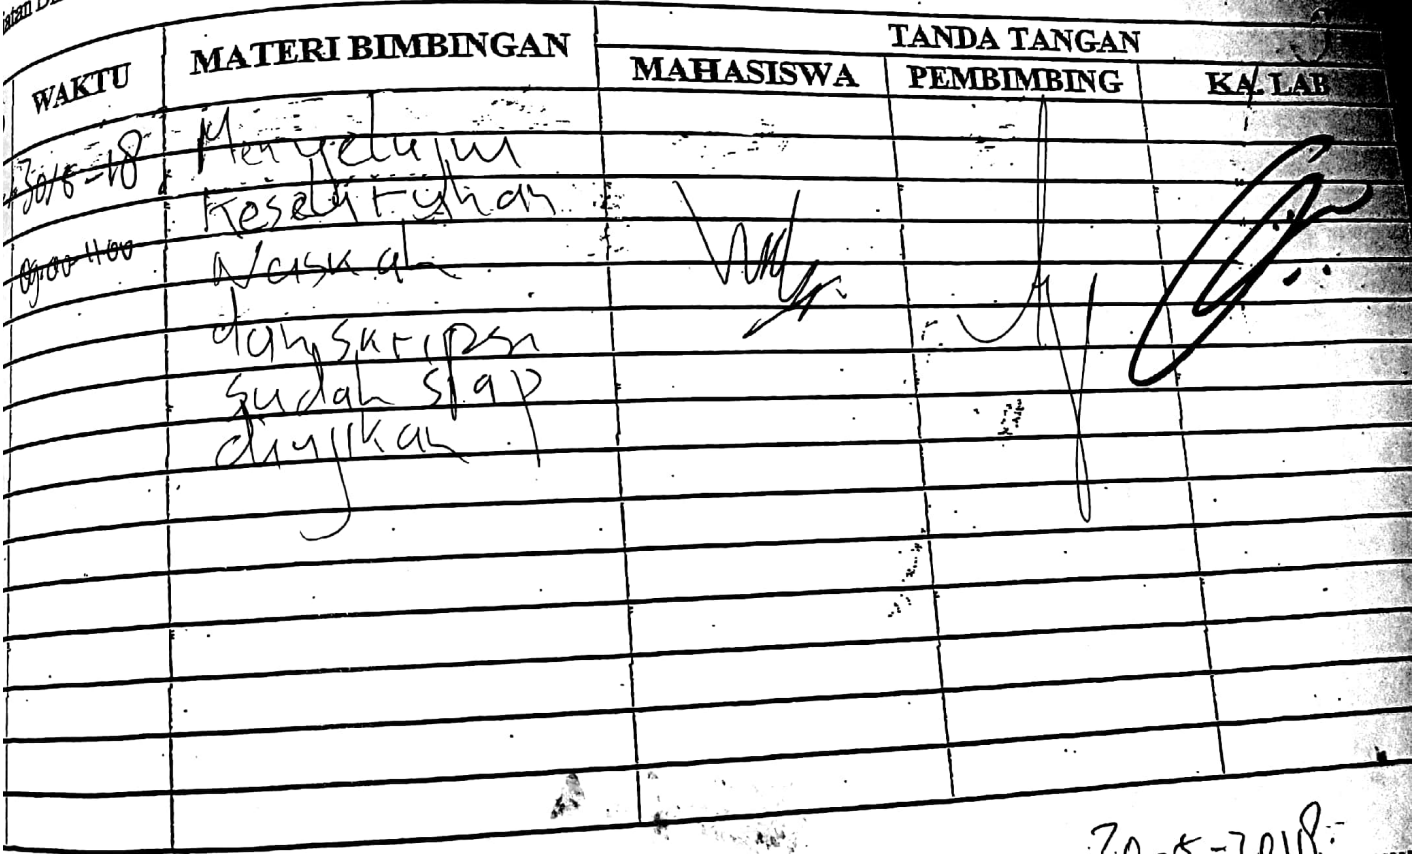 WAKTU MATERI BIMBINGAN TANDA TANGAN
MAHASISWA PEMBIMBING KA. LAB
30/5-18 Menyetujui
Keseluruhan
09.00-11.00 Naskah
dan skripsi
sudah siap
diujikan
30-5-2018